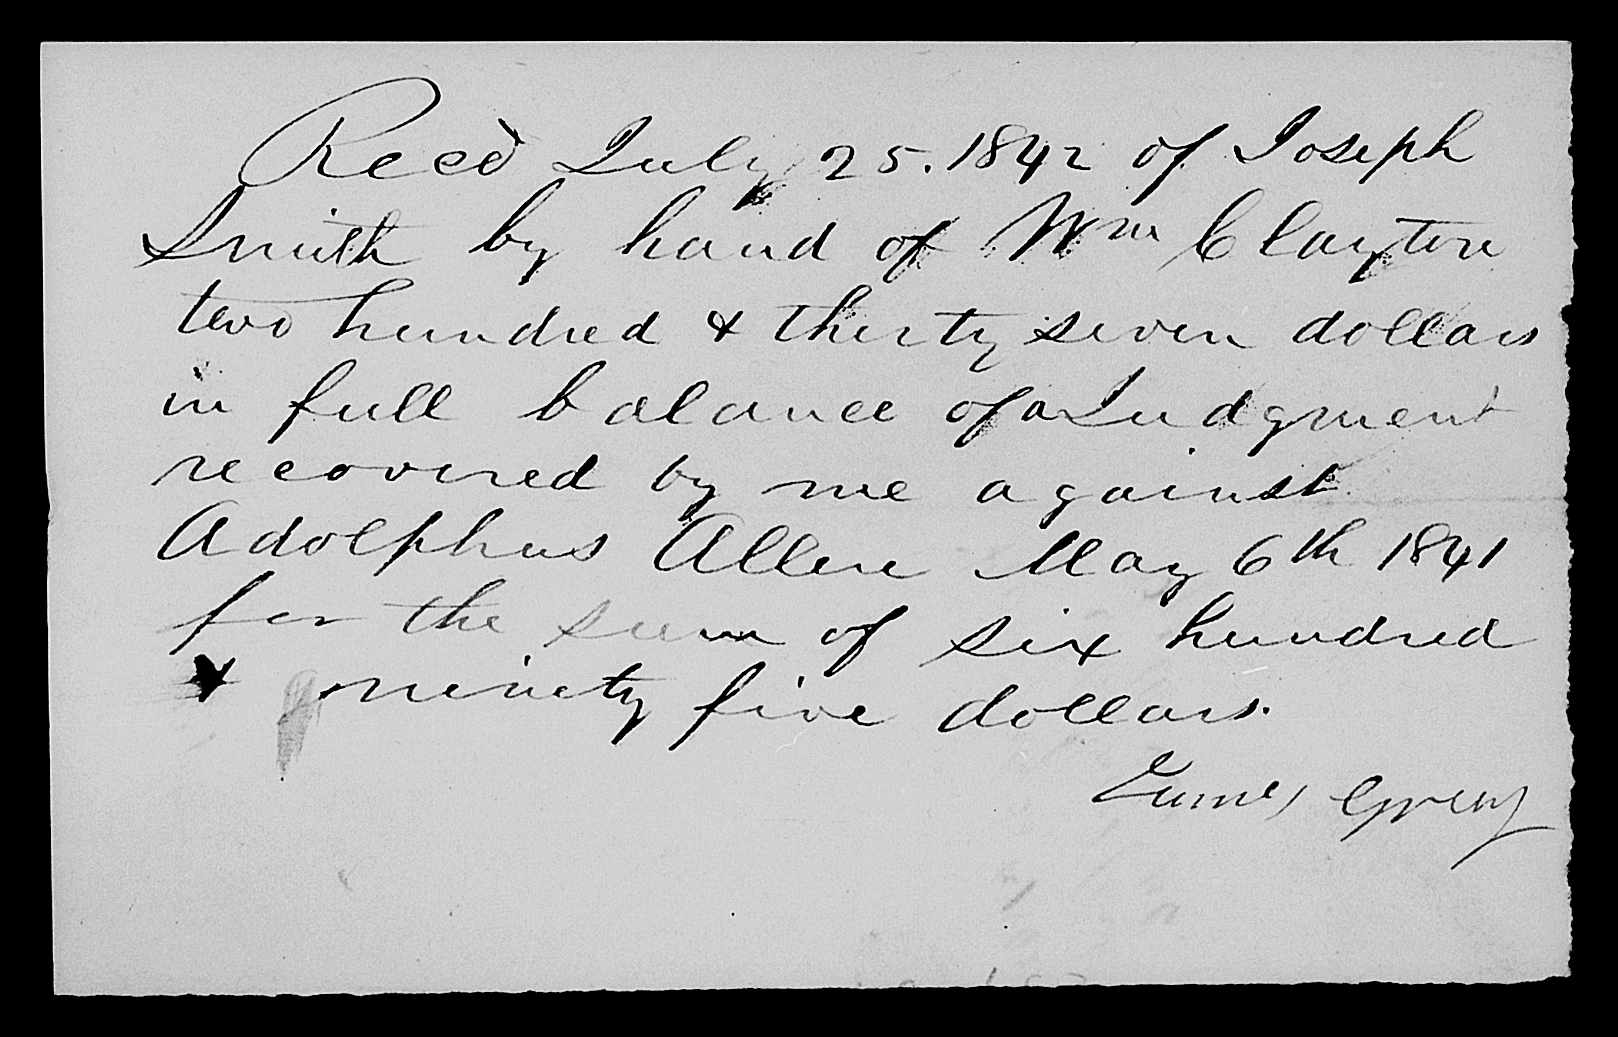 Recd July 25. 1842 of Joseph
Smith by hand of Wm Clayton
two hundred & thirty seven dollars
in full balance of a Judgment
recovered by me against
Adolphus Allen May 6th 1841
for the sum of six hundred
& ninety five dollars.
James Gray